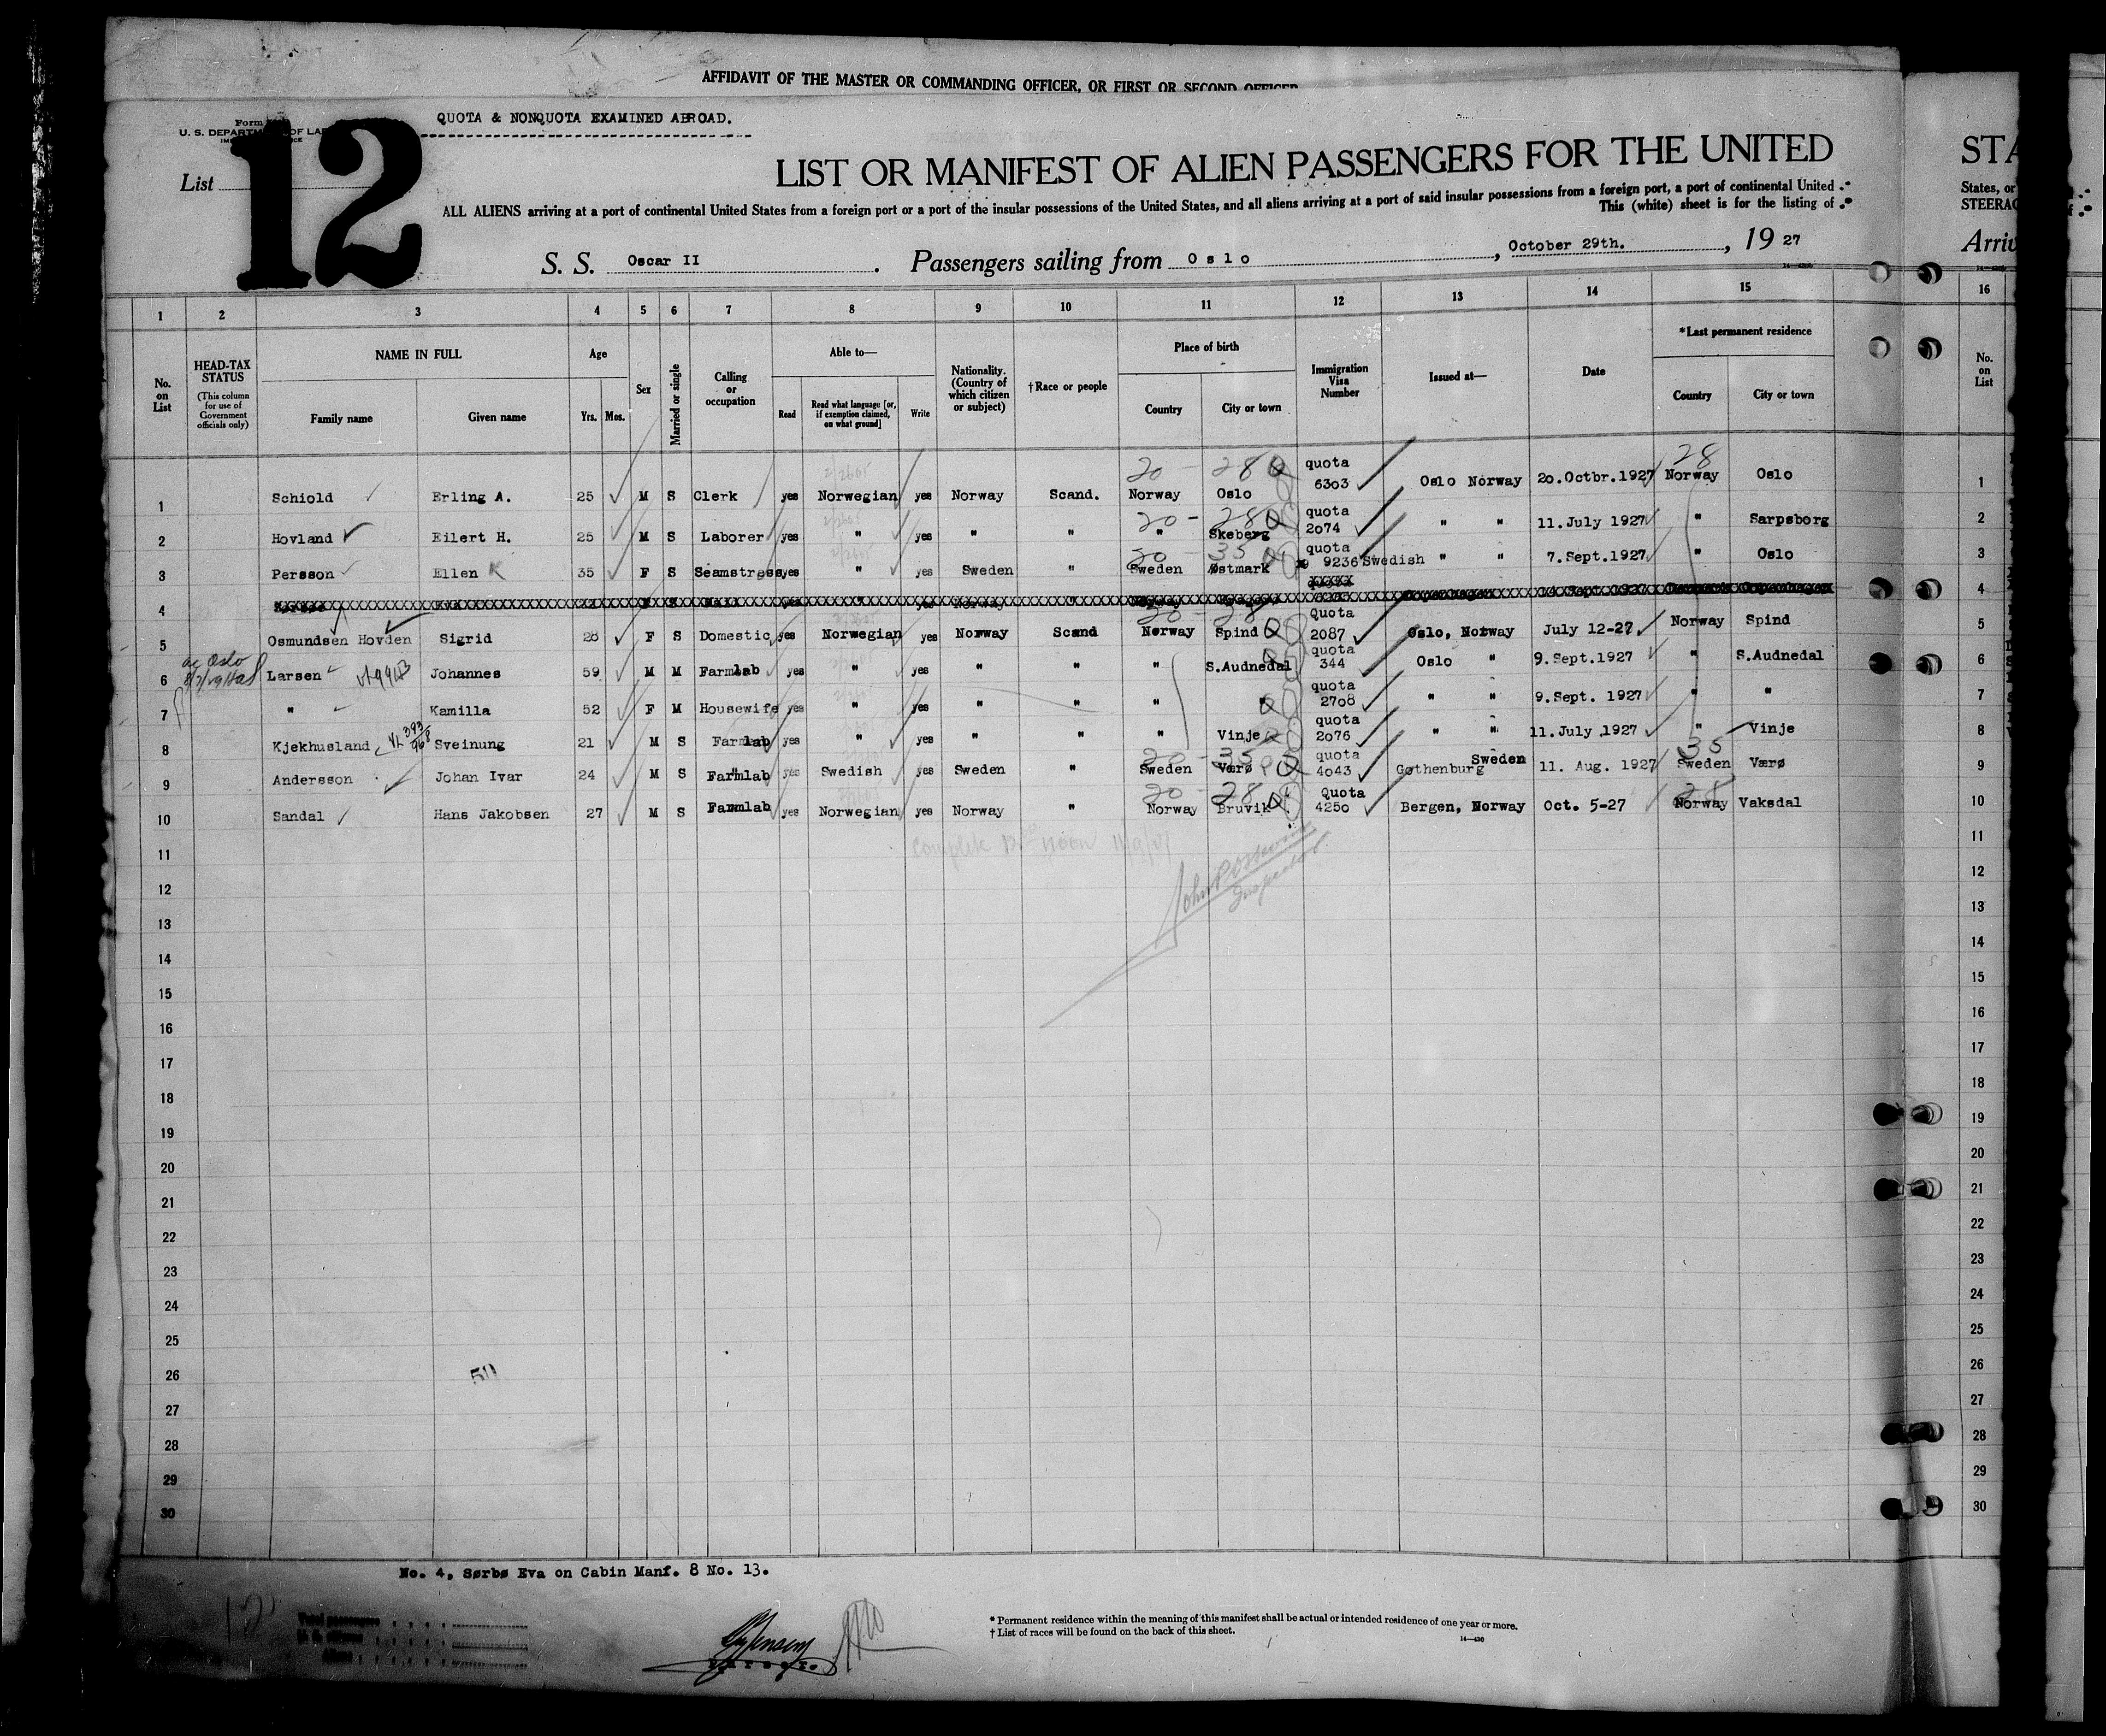 AFFIDAVIT OF THE MASTER OR COMMANDING OFFICER, OR FIRST OR SECOND OFFICER
QUOTA & NONQUOTA EXAMINED ABROAD.
Form
U. S. DEPARTMENT OF LAB
12
List
LIST OR MANIFEST OF ALIEN PASSENGERS FOR THE UNITED
STA
ALL ALIENS arriving at a port of continental United States from a foreign port or a port of the insular possessions of the United States, and all aliens arriving at a port of said insular possessions from a foreign port, a port of continental United
States, or
This (white) sheet is for the listing of
STEERAG
S. S. Oscar II . Passengers sailing from Oslo , October 29th. , 19 27
Arriv
1 2 3 4 5 6 7 8 9 10 11 12 13 14 15 16
No. on List
HEAD-TAX STATUS (This column for use of Government officials only)
NAME IN FULL
Family name Given name
Age
Yrs. Mos.
Sex
Married or single
Calling or occupation
Able to—
Read
Read what language [or, if exemption claimed, on what ground]
Write
Nationality. (Country of which citizen or subject)
†Race or people
Place of birth
Country City or town
Immigration Visa Number
Issued at—
Date
*Last permanent residence
Country City or town
No. on List
20 - 28 Q 28
1 Schiold Erling A. 25 M S Clerk yes Norwegian yes Norway Scand. Norway Oslo quota 6303 Oslo Norway 20.Octbr.1927 Norway Oslo 1
20 - 28 Q
2 Hovland Eilert H. 25 M S Laborer yes " yes " " " Skeberg quota 2074 " " 11.July 1927 " Sarpsborg 2
20 - 35 Q
3 Persson Ellen K 35 F S Seamstress yes " yes Sweden " Sweden Østmark quota 9236 Swedish " " 7.Sept.1927 " Oslo 3
4 4
20 28
5 Osmundsen Hovden Sigrid 28 F S Domestic yes Norwegian yes Norway Scand Norway Spind Q Quota 2087 Oslo, Norway July 12-27 Norway Spind 5
6 Larsen Johannes 59 M M Farmlab yes " yes " " " S.Audnedal quota 344 Oslo " 9.Sept.1927 " S.Audnedal 6
7 " Kamilla 52 F M Housewife yes " yes " " " " Q quota 2708 " " 9.Sept. 1927 " " 7
8 Kjekhusland Sveinung 21 M S Farmlab yes " yes " " " Vinje quota 2076 " " 11.July 1927 " Vinje 8
20 - 35 Q 35
9 Andersson Johan Ivar 24 M S Farmlab yes Swedish yes Sweden " Sweden Værø quota 4043 Gothenburg Sweden 11. Aug. 1927 Sweden Værø 9
20 - 28 Q 28
10 Sandal Hans Jakobsen 27 M S Farmlab yes Norwegian yes Norway " Norway Bruvik Quota 4250 Bergen, Norway Oct. 5-27 Norway Vaksdal 10
11 11
12 12
13 13
14 14
15 15
16 16
17 17
18 18
19 19
20 20
21 21
22 22
23 23
24 24
25 25
26 26
27 27
28 28
29 29
30 30
Inspector
50
No. 4, Sørbø Eva on Cabin Manf. 8 No. 13.
12
* Permanent residence within the meaning of this manifest shall be actual or intended residence of one year or more.
† List of races will be found on the back of this sheet.